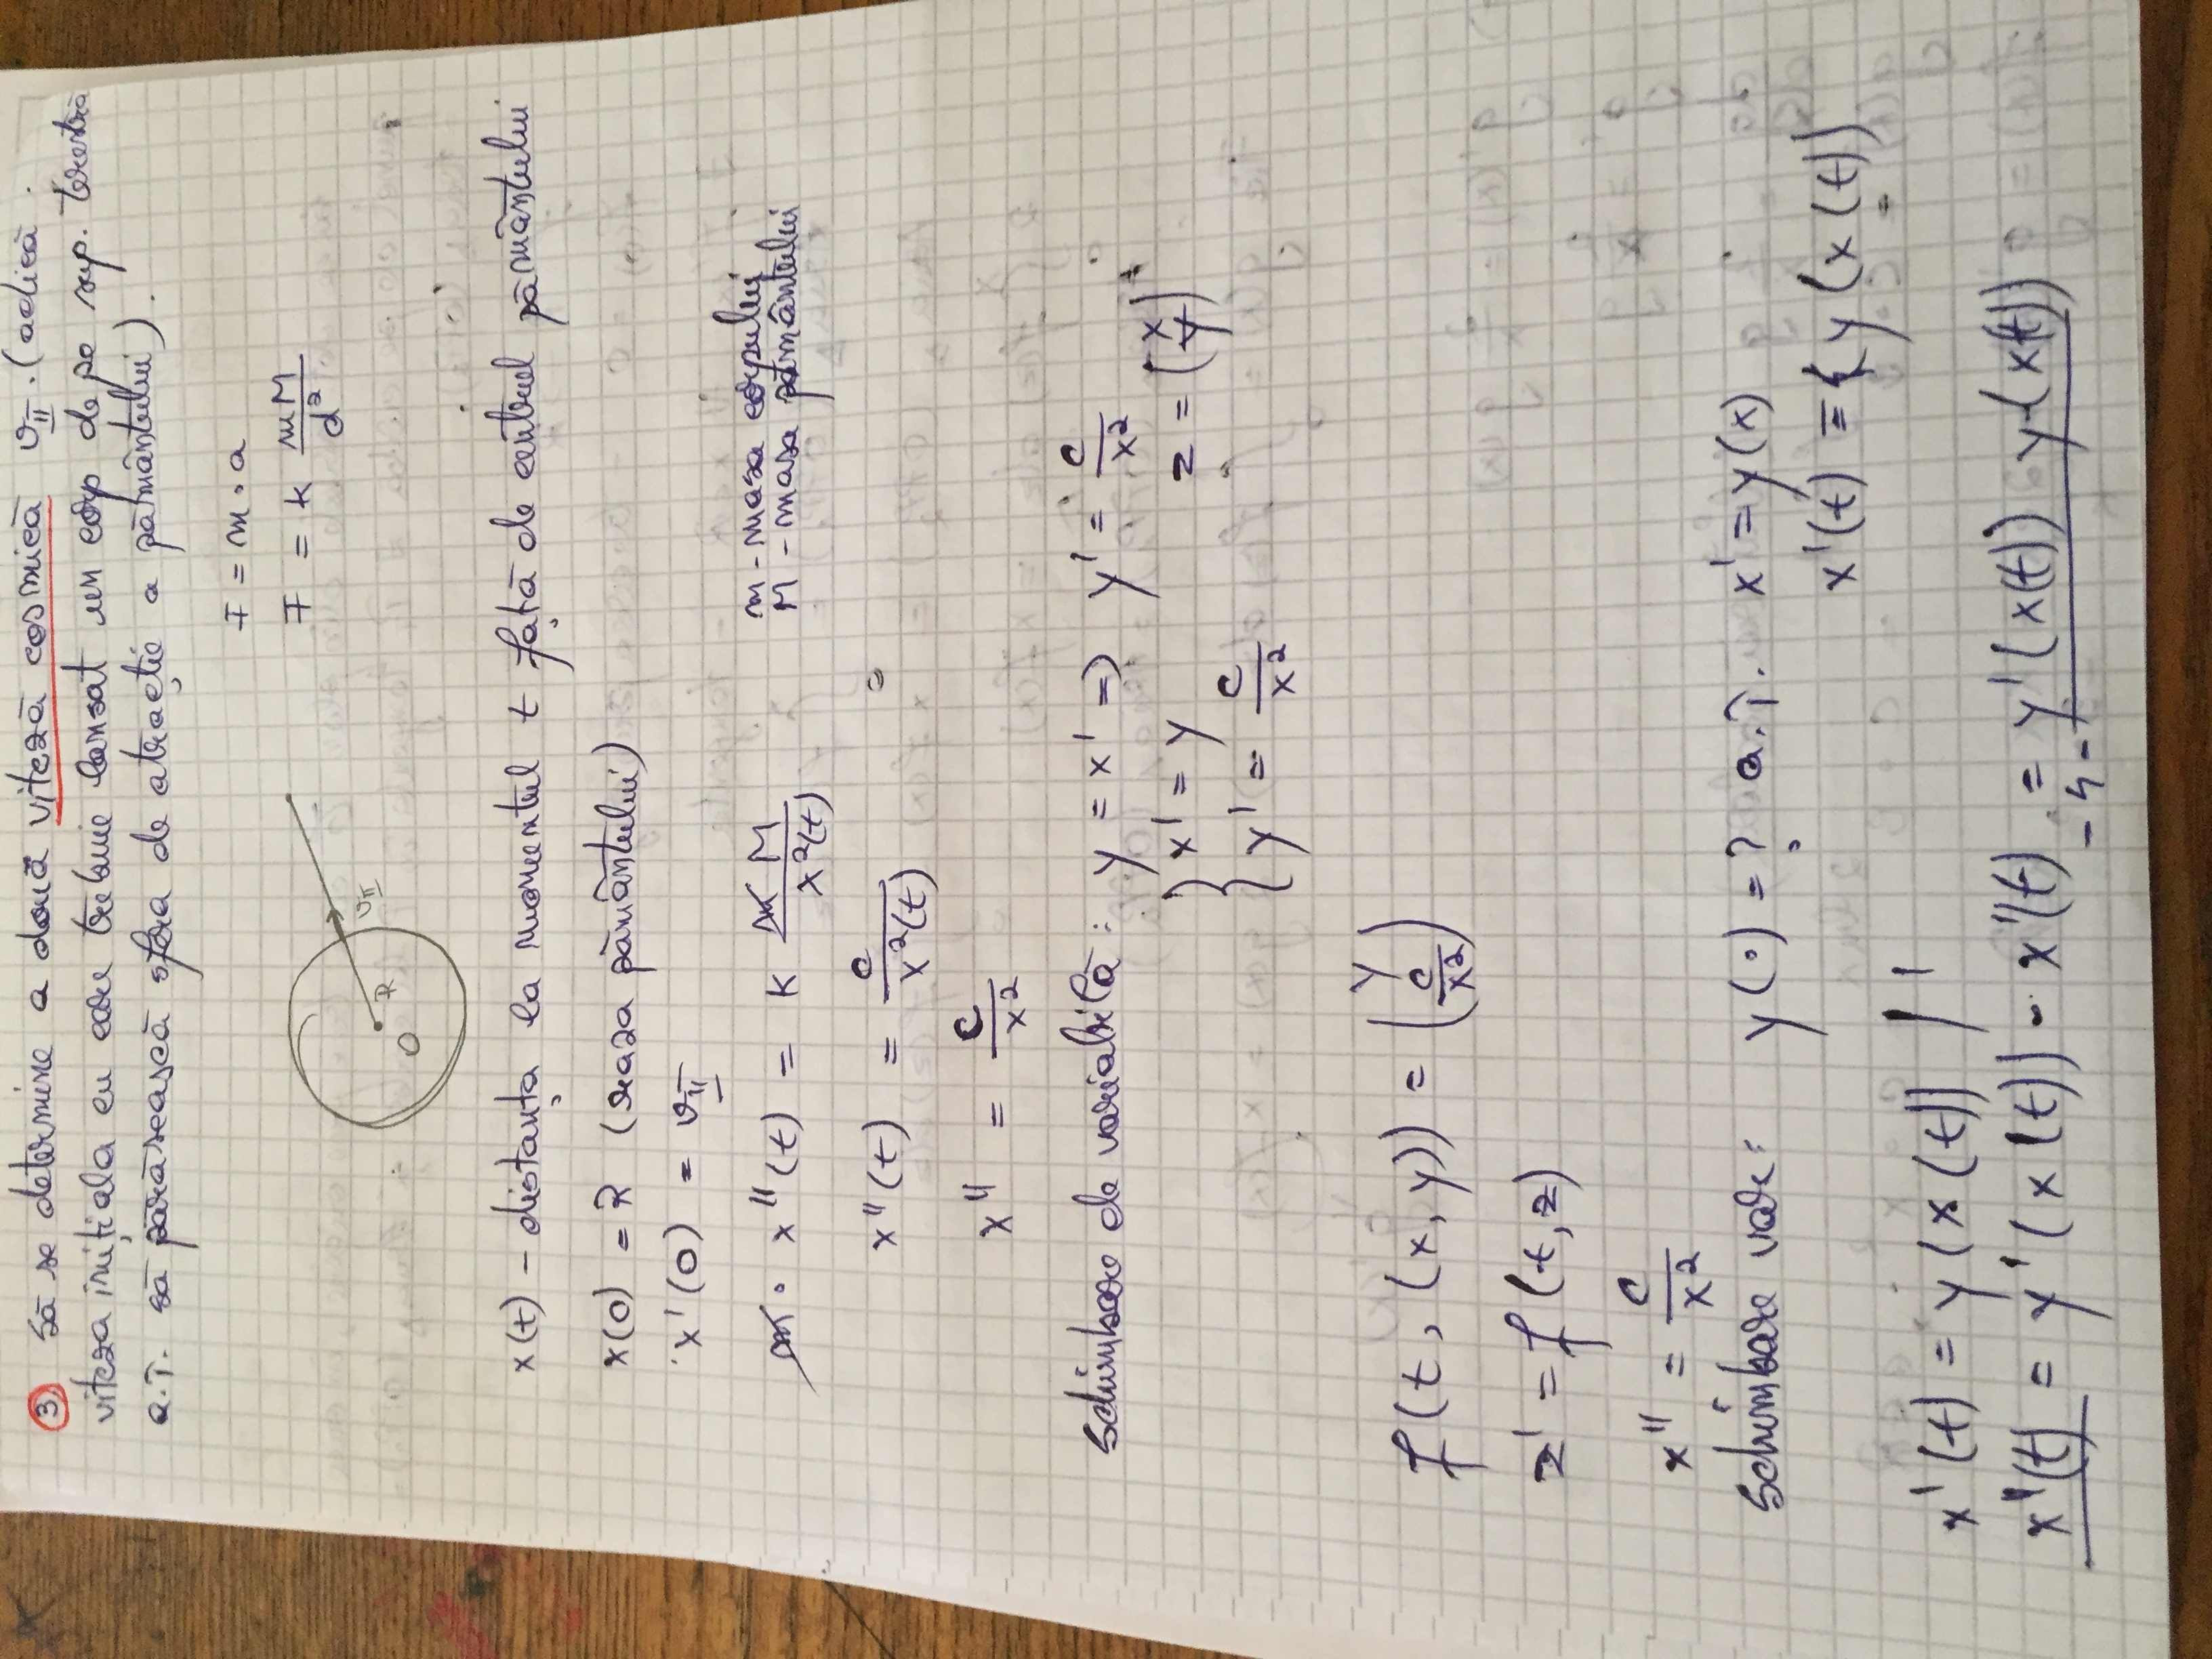 3) Să se determine a două viteză cosmică v_II. (adică
viteza inițiala cu care trebuie lansat un corp de pe sup. terestră
a.î. să părăsească sfera de atracție a pământului).
F = m · a
F = k mM/d²
R
v_II
O
x(t) – distanța la momentul t față de centrul pământului
x(0) = R (raza pământului)
x'(0) = v_II
m · x''(t) = k mM/x²(t)
m - masa corpului
M - masa pământului
x''(t) = c/x²(t)
x'' = c/x²
schimbare de variabilă: y = x' => y' = c/x²
{ x' = y
z = (x/y)
y' = c/x²
f(t, (x, y)) = (y c/x²)
z' = f(t, z)
x'' = c/x²
schimbare var: y(·) = ? a.î. x' = y(x)
x'(t) = y(x(t))
x'(t) = y(x(t)) | '
x''(t) = y'(x(t)) · x'(t) = y'(x(t)) y(x(t))
- 4 -